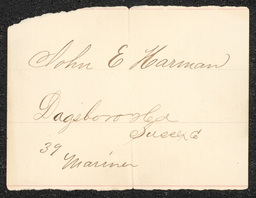 John E Harman
Dagsboro Hd
Sussex C
39
Mariner